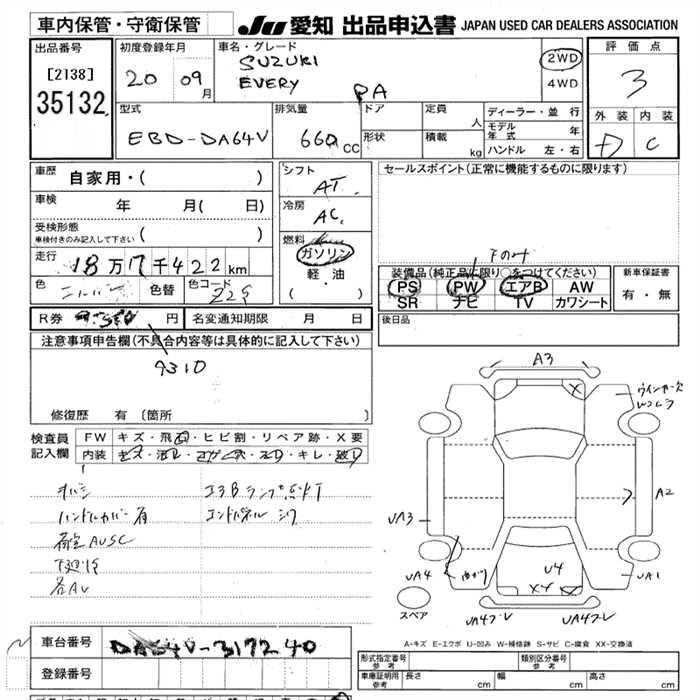 車内保管・守衛保管
JU 愛知 出品申込書 JAPAN USED CAR DEALERS ASSOCIATION
出品番号
[2138]
35132
初度登録年月
20 09月
車名・グレード
SUZUKI
EVERY
PA
2WD
4WD
評価点
3
外装 内装
D C
型式
EBD-DA64V
排気量
660 CC
ドア
形状
定員 人
積載 kg
ディーラー・並行
モデル年式 年
ハンドル 左・右
車歴 自家用・( )
車検 年 月( 日)
受検形態
車検付きのみ記入して下さい ( )
走行 18万17千422km
色 シルバー 色替 色コード Z2S
シフト AT
冷房 AC
燃料
ガソリン
軽・油
( )
セールスポイント(正常に機能するものに限ります)
下のみ
装備品(純正品に限り○をつけてください)
PS PW エアB AW
SR ナビ TV カワシート
新車保証書
有・無
R券 円 名変通知期限 月 日
9310
後日品
注意事項申告欄(不具合内容等は具体的に記入して下さい)
修復歴 有 [箇所 ]
検査員記入欄
FW キズ・飛石・ヒビ割・リペア跡・X要
内装 キズ・汚れ・コゲ・穴・スレ・キレ・破れ
ハンドルカバー有
荷室AUSC
各AU
エアBランプ点灯
エンドパネル シワ
A3
X
ウインカー欠
A2
UA3
UA4
U4
XX
UA1
スペア
A-キズ E-エクボ U-凹み W-補修跡 S-サビ C-腐食 XX-交換済
車台番号 DA64V-317240
登録番号
形式指定番号 参考
類別区分番号 参考
車庫証明用 参考 長さ cm 幅 cm 高さ cm